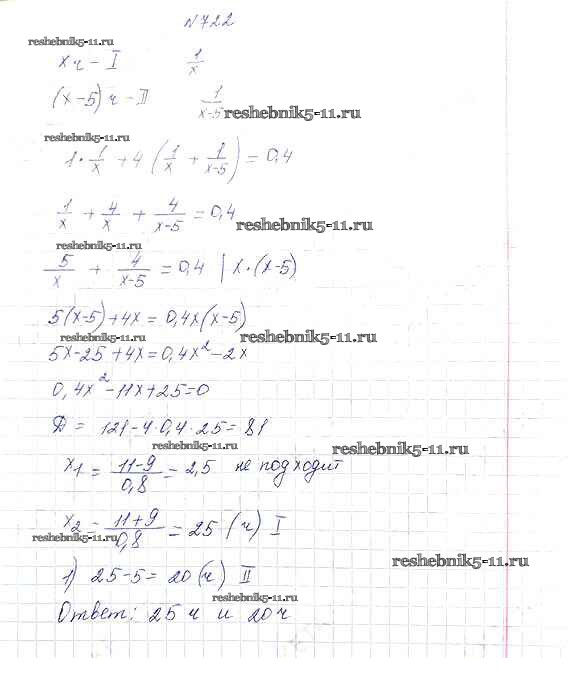 №722
reshebnik5-11.ru
x ч - I 1/x
(x-5) ч - II 1/(x-5)
reshebnik5-11.ru
reshebnik5-11.ru
1·1/x + 4(1/x + 1/(x-5)) = 0,4
1/x + 4/x + 4/(x-5) = 0,4
reshebnik5-11.ru
reshebnik5-11.ru
5/x + 4/(x-5) = 0,4 | x·(x-5)
5(x-5)+4x = 0,4x(x-5)
reshebnik5-11.ru
reshebnik5-11.ru
5x-25+4x=0,4x²-2x
0,4x²-11x+25=0
D = 121-4·0,4·25=81
reshebnik5-11.ru
reshebnik5-11.ru
x1 = (11-9)/0,8 = 2,5 не подходит
x2 = (11+9)/0,8 = 25 (ч) I
reshebnik5-11.ru
reshebnik5-11.ru
1) 25-5=20(ч) II
reshebnik5-11.ru
Ответ: 25 ч и 20ч